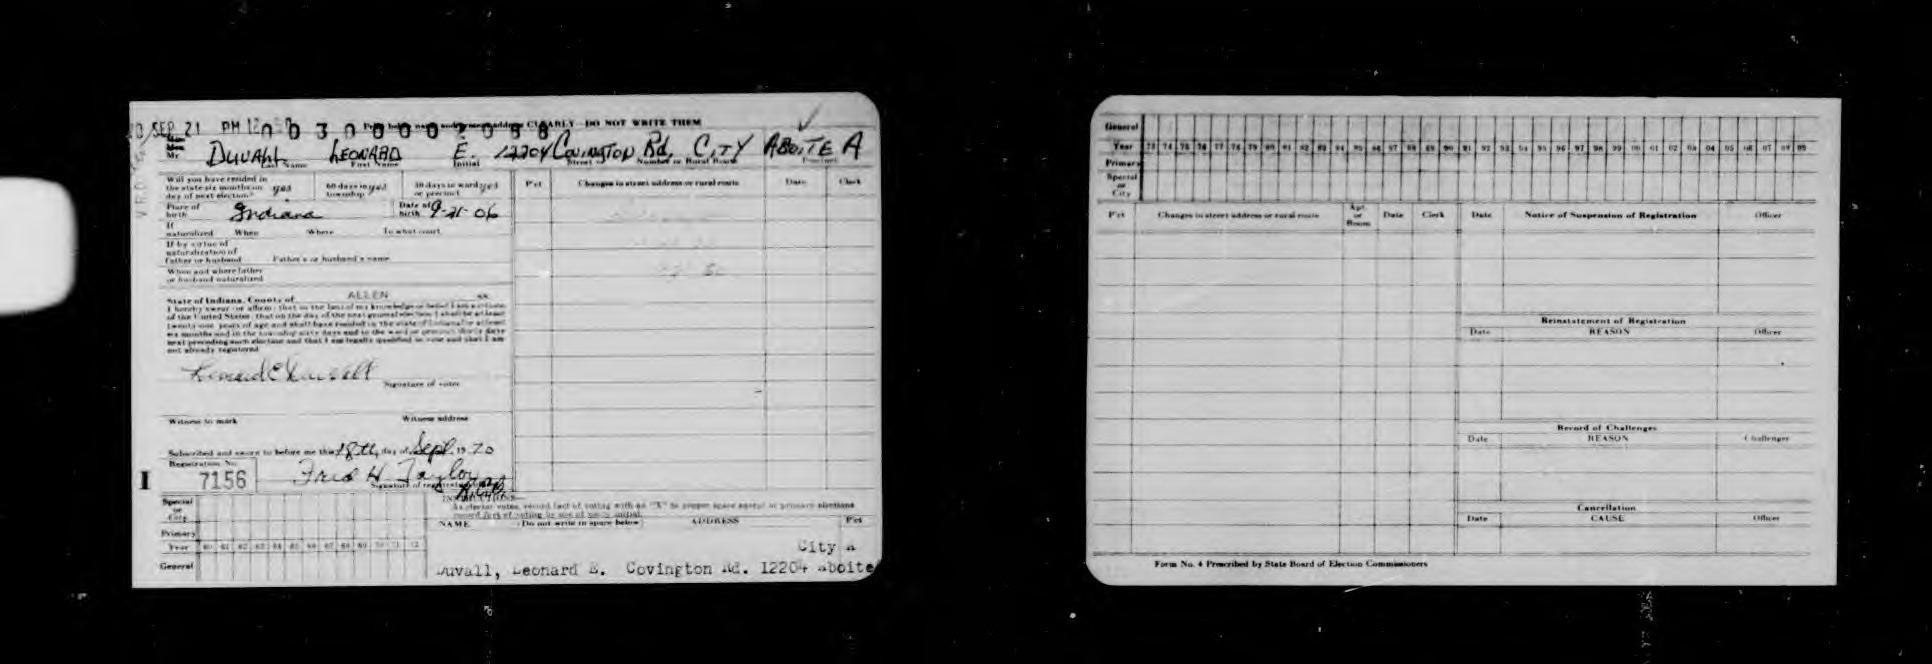 SEP 21 PM 12
0 0 3 0 0 0 0 2 0 8 8
CLEARLY—DO NOT WRITE THEM
Mr. DUVALL LEONARD E. 12204 COVINGTON Rd. CITY ABOITE A
Last Name First Name Initial Street or Number or Rural Route Precinct
Will you have resided in
the state six months on yes 60 days in yes 30 days in ward yes
day of next election? township? or precinct
Place of birth Indiana Date of birth 9-21-06
If naturalized When Where To what court
If by virtue of
naturalization of
father or husband Father's or husband's name
When and where father
or husband naturalized
State of Indiana, County of ALLEN ss.
I hereby swear (or affirm) that to the best of my knowledge or belief I am a citizen
of the United States, that on the day of the next general election I shall be at least
twenty-one years of age and shall have resided in the state of Indiana for at least
six months and in the township sixty days and in the ward or precinct thirty days
next preceding such election and that I am legally qualified to vote and that I am
not already registered
Leonard E Duvall
Signature of voter
Witness to mark Witness address
Subscribed and sworn to before me this 18th day of Sept. 19 70
Registration No.
7156 Fred H Taylor
I
Pct Changes in street address or rural route Date Clerk
Special
or
City
Primary
Year 60 61 62 63 64 65 66 67 68 69 70 71 72
General
INSTRUCTIONS
As elector votes, record fact of voting with an "X" in proper space except at primary elections
record fact of voting by use of party initial.
NAME (Do not write in space below) ADDRESS Pct
City A
Duvall, Leonard E. Covington Rd. 12204 Aboite
General
Year 73 74 75 76 77 78 79 80 81 82 83 84 85 86 87 88 89 90 91 92 93 94 95 96 97 98 99 00 01 02 03 04 05 06 07 08 09
Primary
Special
or
City
Pct Changes in street address or rural route Apt. or Room Date Clerk Date Notice of Suspension of Registration Officer
Reinstatement of Registration
Date REASON Officer
Record of Challenges
Date REASON Challenger
Cancellation
Date CAUSE Officer
Form No. 4 Prescribed by State Board of Election Commissioners